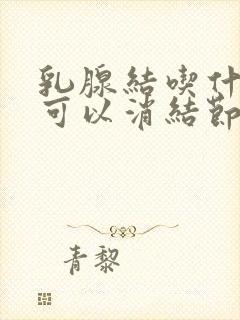 乳腺結喫什
可以消結節
青黎